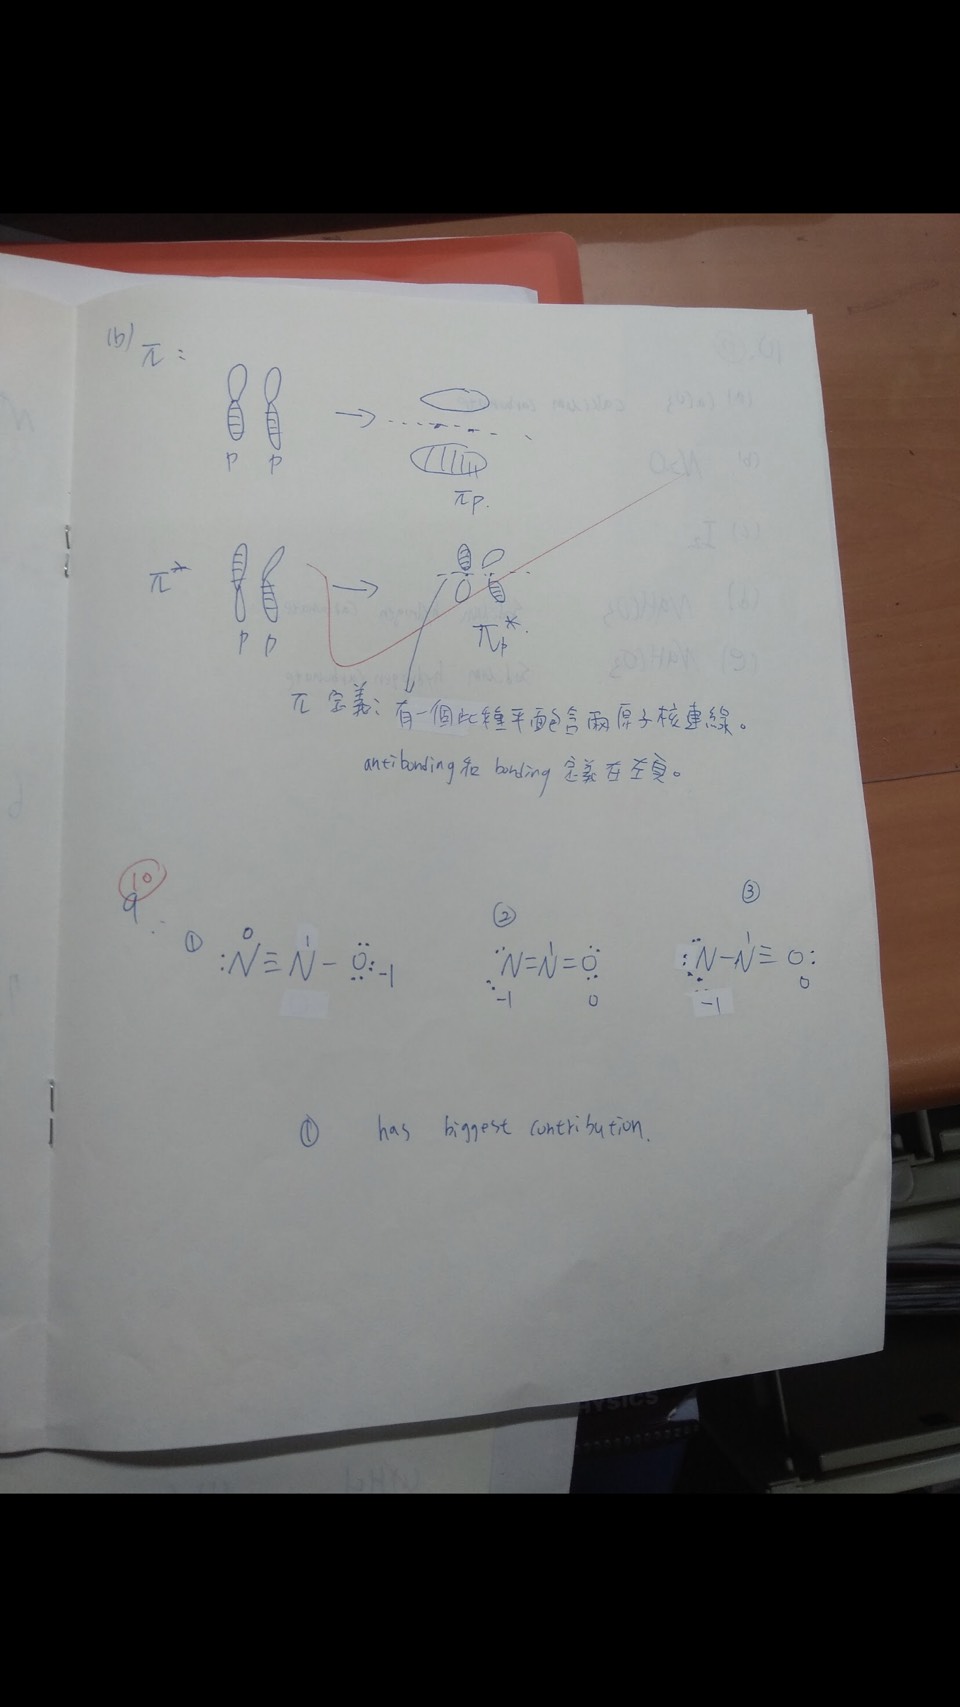 (b) π :
p p
πp.
π*
p p
πp*.
π 定義: 有一個此種平面包含兩原子核連線。
antibonding和 bonding 定義在左頁。
10
9.
① ② ③
0 1
:N≡N-O:-1
N=N=O
-1 0
1
:N-N≡O:
-1 0
① has biggest contribution.